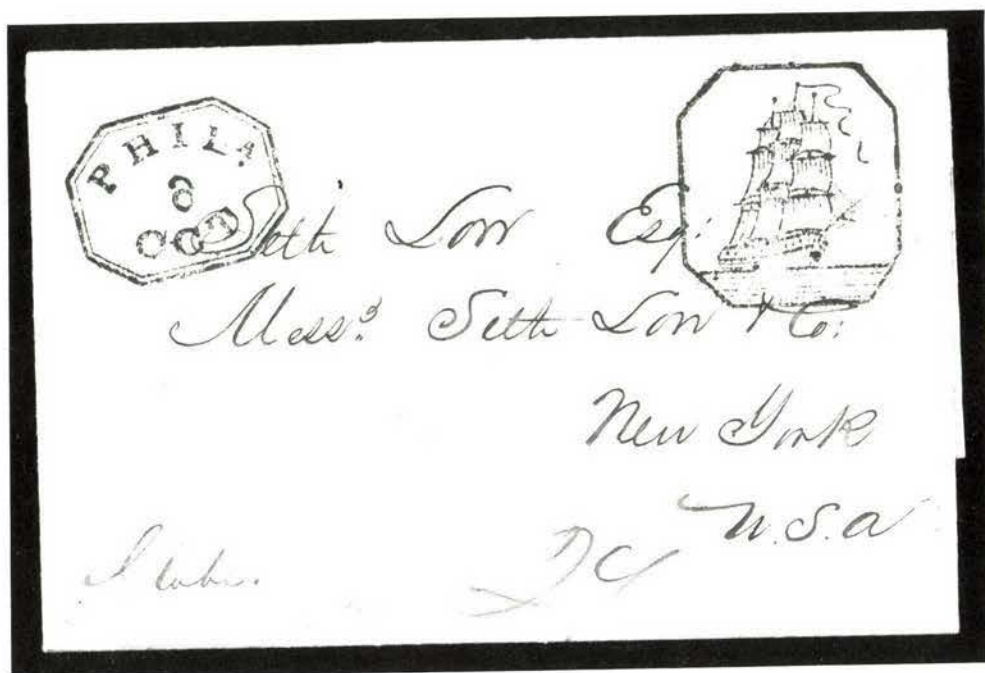 PHILA
6
OCD
Seth Low Esqr
Messrs Seth Low & Co:
New York
U.S.A